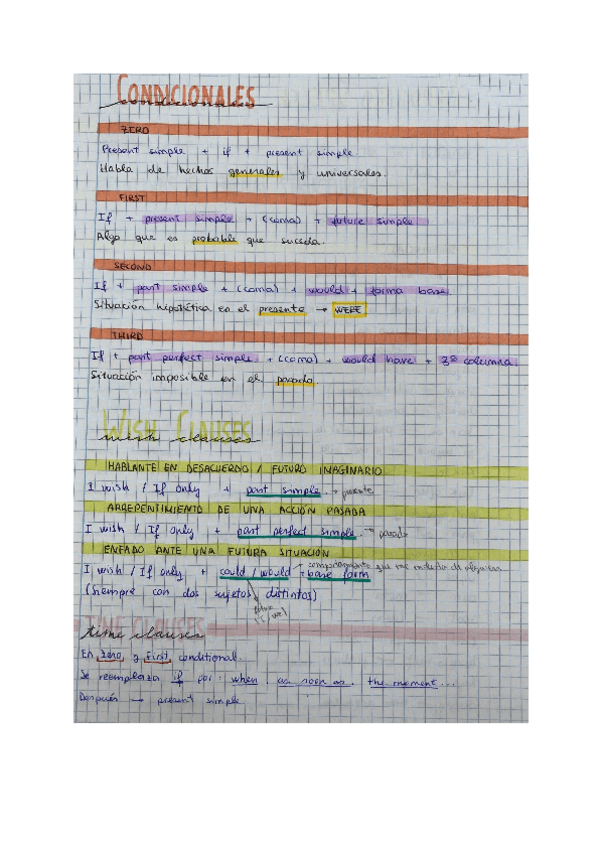 CONDICIONALES
condicionales
ZERO
Present simple + if + present simple.
Habla de hechos generales y universales.
FIRST
If + present simple + (coma) + future simple
Algo que es probable que suceda.
SECOND
If + past simple + (coma) + would + forma base
Situación hipotética en el presente → WERE
THIRD
If + past perfect simple + (coma) + would have + 3ª columna.
Situación imposible en el pasado.
WISH CLAUSES
wish clauses
HABLANTE EN DESACUERDO / FUTURO IMAGINARIO
I wish / If only + past simple. → presente
ARREPENTIMIENTO DE UNA ACCIÓN PASADA
I wish / If only + past perfect simple. → pasado
ENFADO ANTE UNA FUTURA SITUACIÓN
I wish / If only + could / would + base form
comportamiento que me molesta de alguien
(Siempre con dos sujetos distintos)
futuro
TIME CLAUSES
time clauses
En zero y first conditional.
Se reemplaza if por: when, as soon as, the moment...
Después → present simple